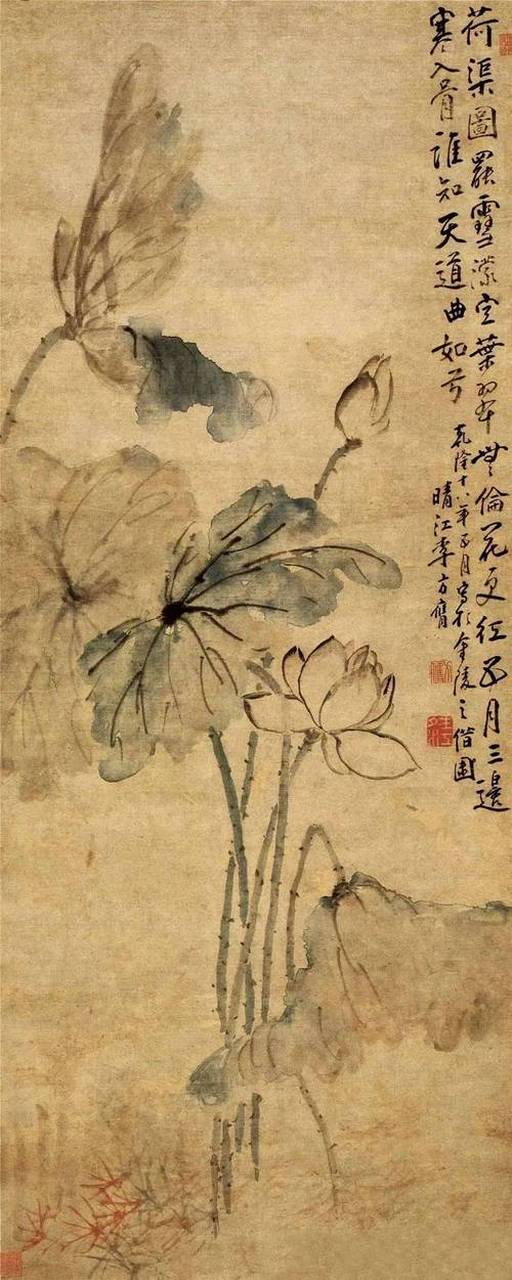 荷渠圖罷雪濛空葉翠無倫花更紅五月三邊
寒入骨誰知天道曲如弓
乾隆十八年五月寫於金陵之借園
晴江李方膺